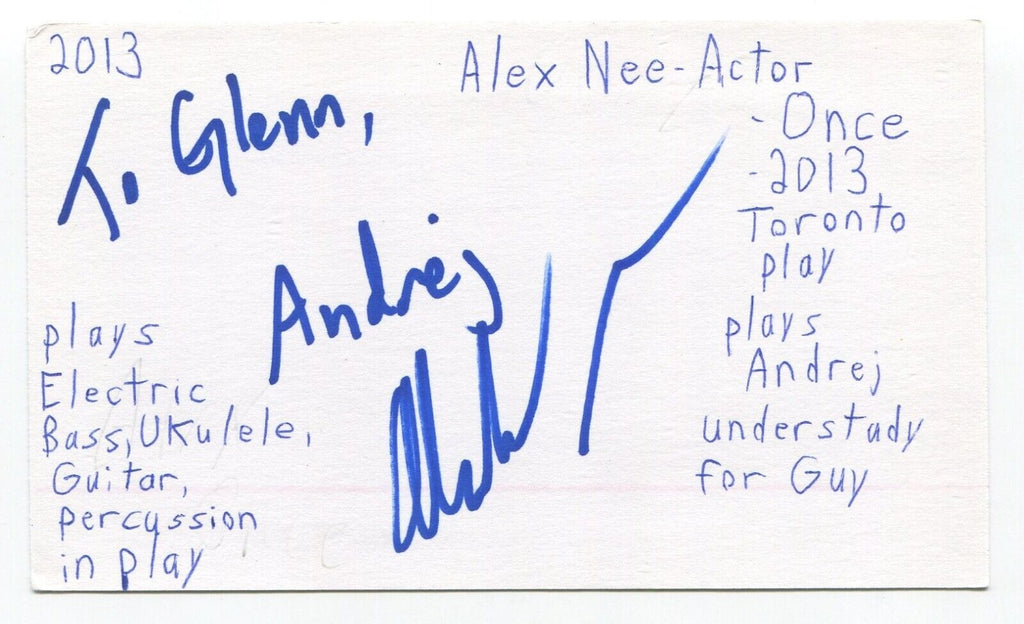 2013
Alex Nee-Actor
To Glenn,
- Once
-2013
Toronto
play
plays
Andrej
understudy
for Guy
Andrej
plays
Electric
Bass, Ukulele,
Guitar,
percussion
in play